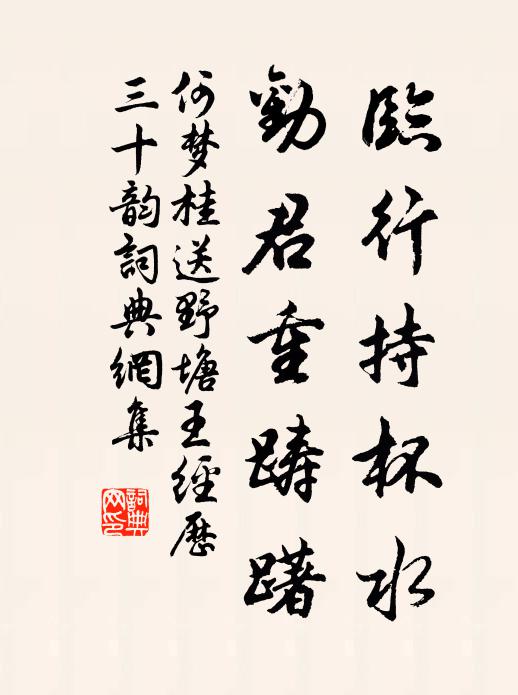 臨行持杯水
勸君重踌躇
何梦桂送野塘王經歷
三十韵詞典網集
詞典
网印